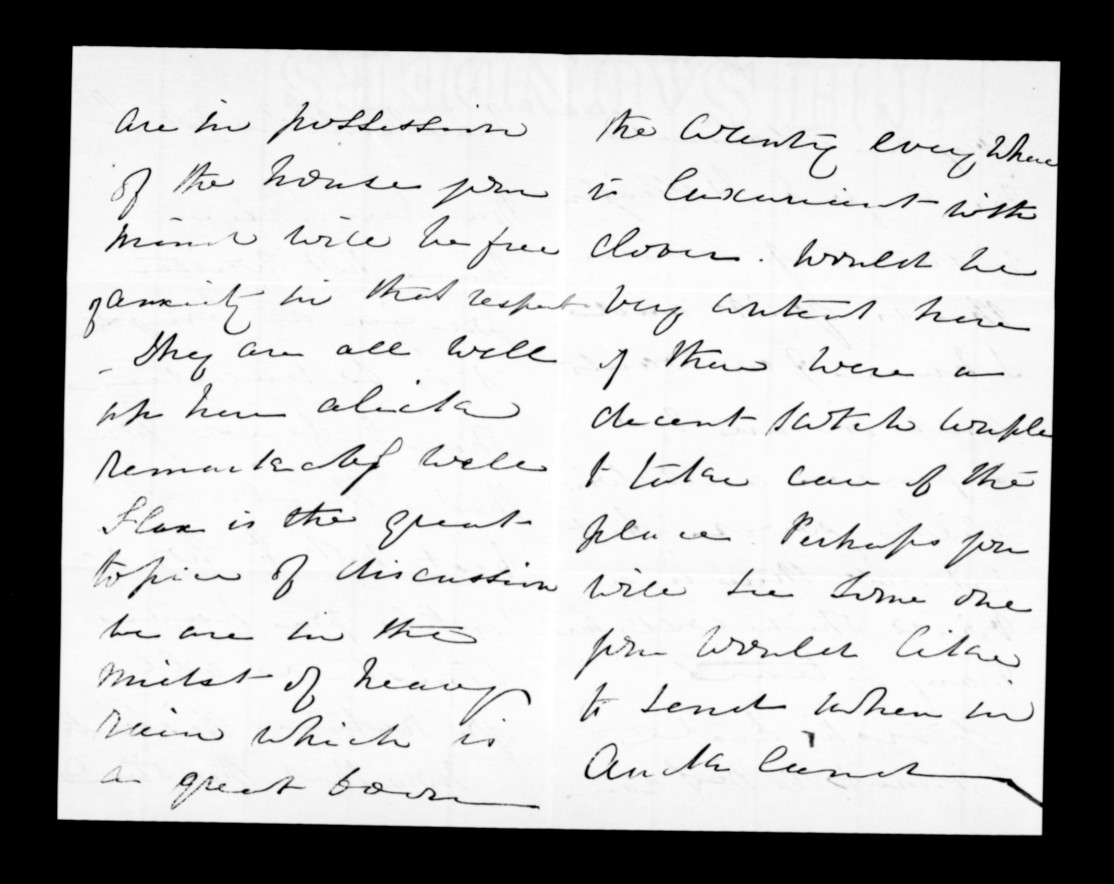 are in possession
of the house your
mind will be free
of anxiety in that respect
- They are all well
up here alicka
remarkably well
Flax is the great
topic of discussion
we are in the
midst of heavy
rain which is
a great boon
the country every where
is luxuriant with
clover. Would be
very content here
if there were a
decent Scotch couple
to take care of the
place. Perhaps you
will see some one
you would like
to send when in
Auckland